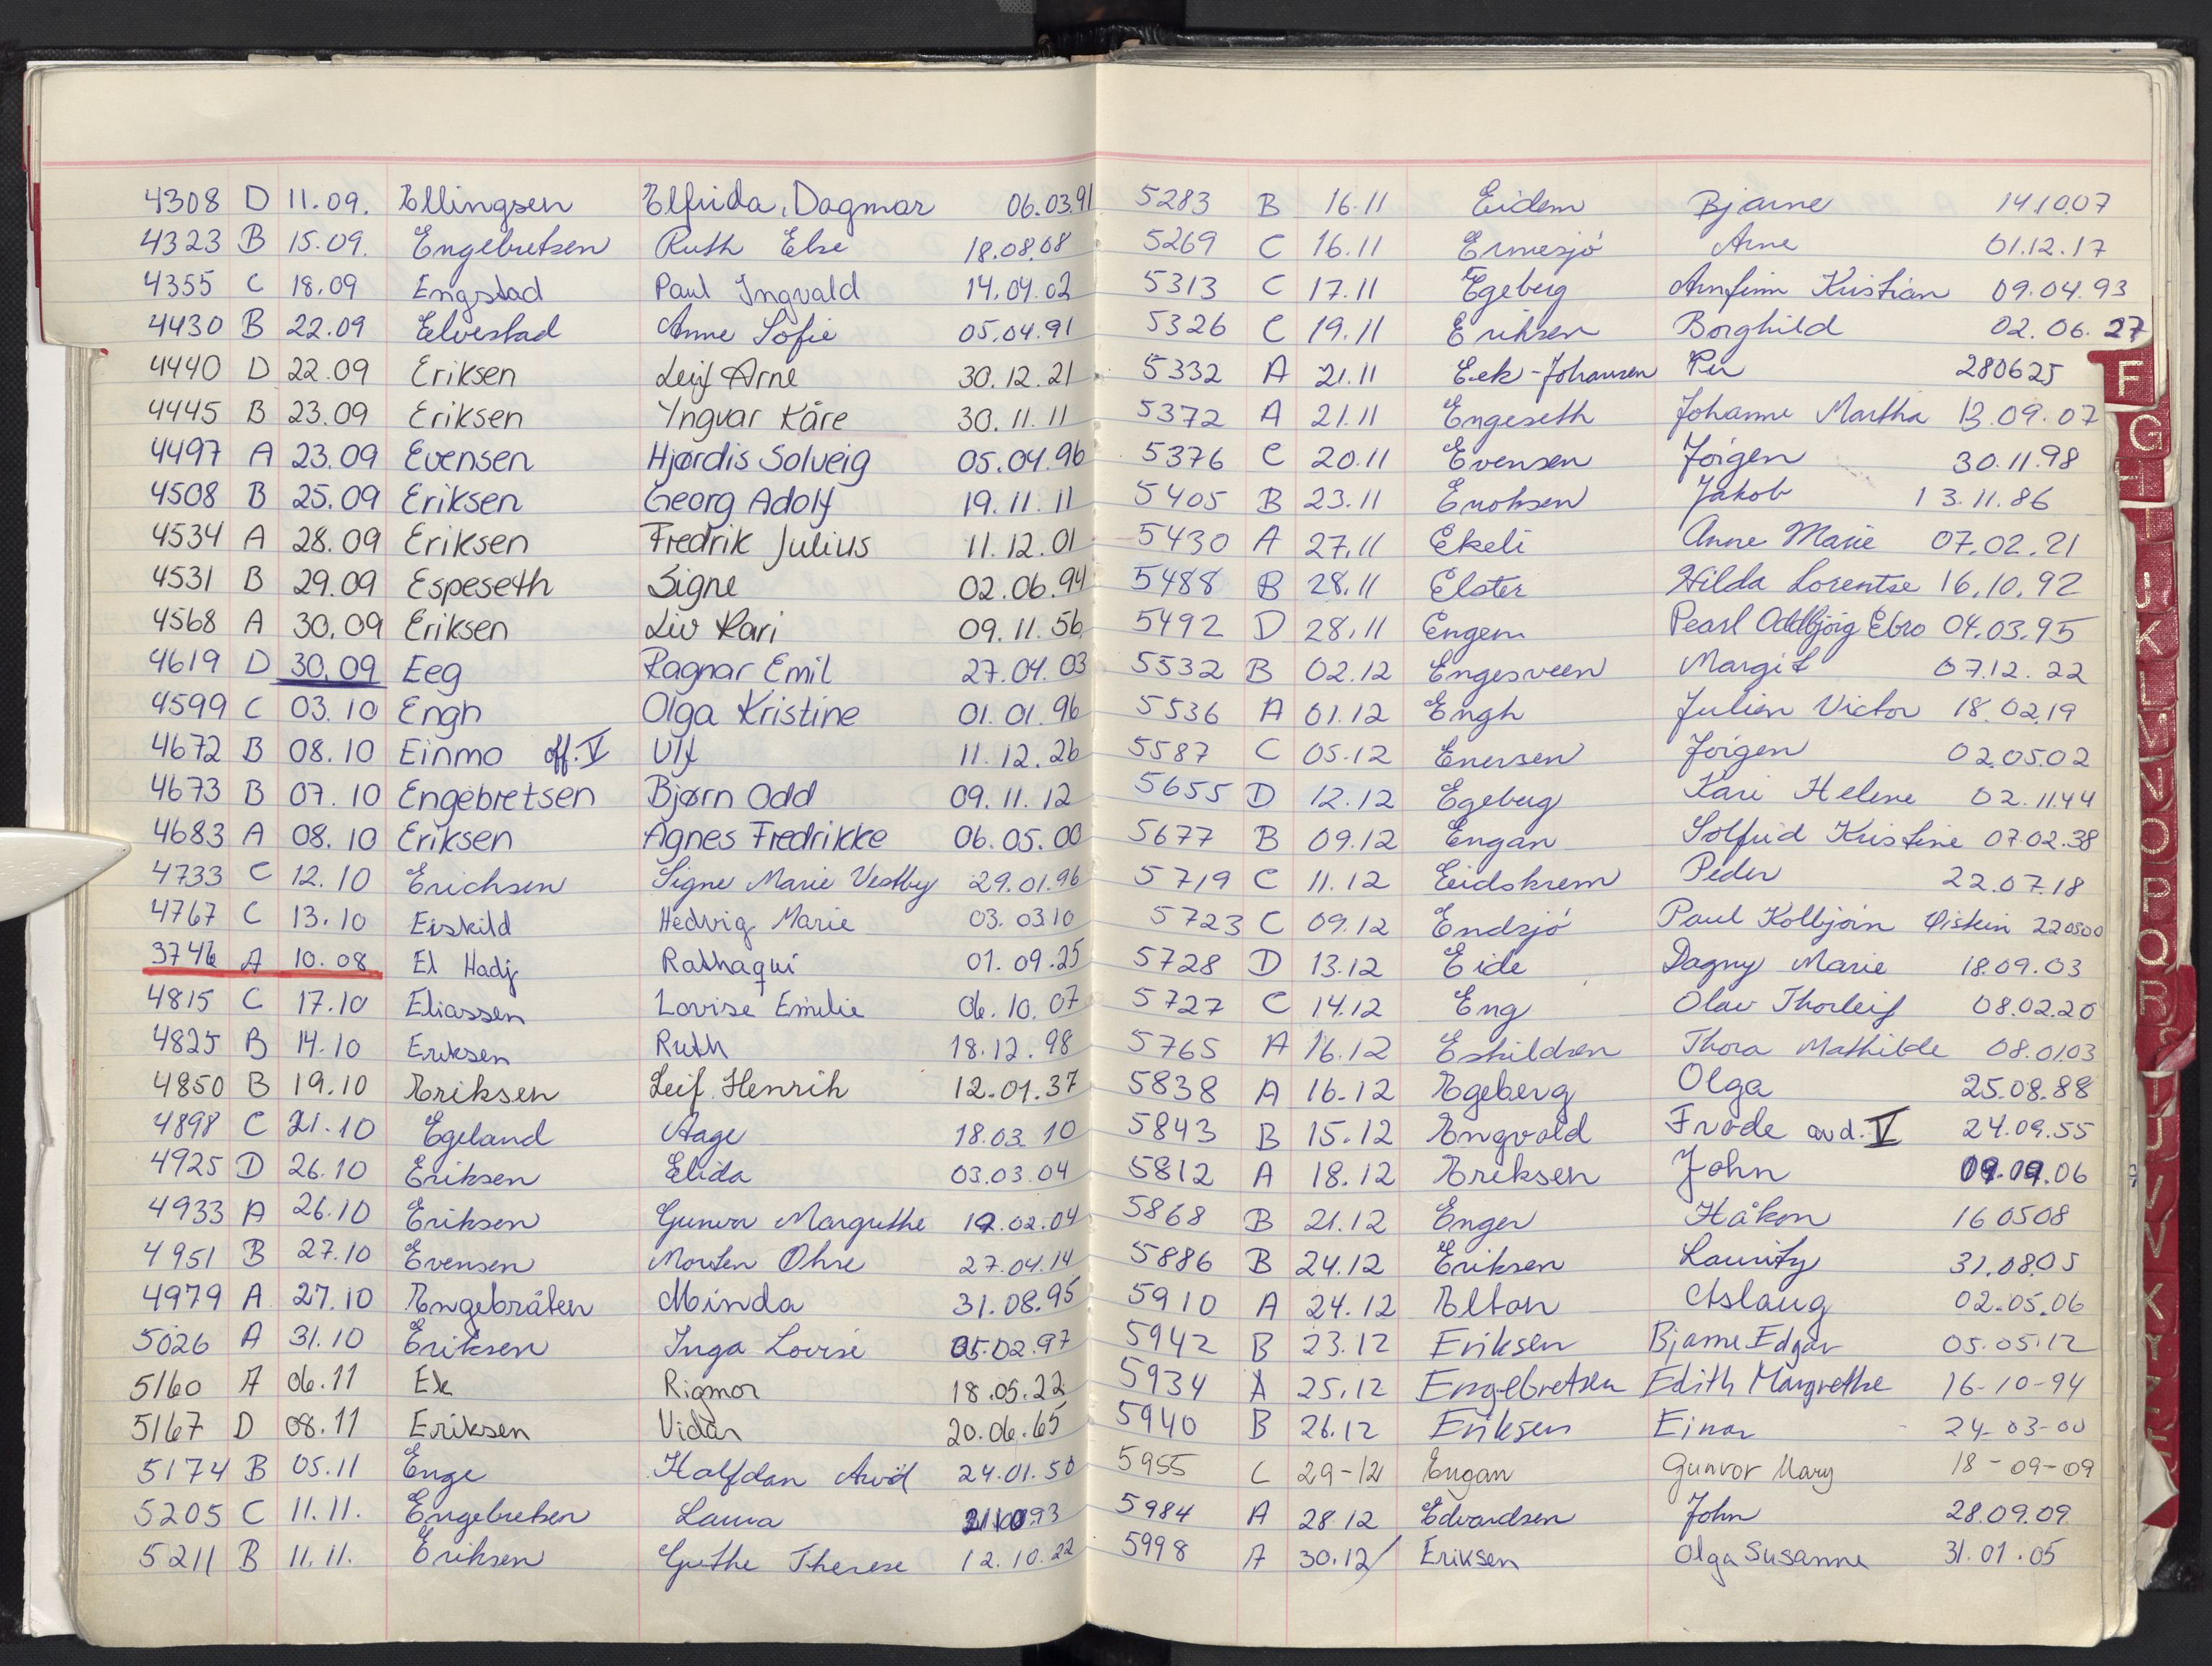 4308 D 11.09. Ellingsen Elfrida, Dagmar 06.03.91
4323 B 15.09. Engebretsen Ruth Else 18.08.08
4355 C 18.09 Engstad Paul Ingvald 14.04.02
4430 B 22.09 Elvestad Anne Sofie 05.04.91
4440 D 22.09 Eriksen Leif Arne 30.12.21
4445 B 23.09 Eriksen Yngvar Kåre 30.11.11
4497 A 23.09 Evensen Hjørdis Solveig 05.04.96
4508 B 25.09 Eriksen Georg Adolf 19.11.11
4534 A 28.09 Eriksen Fredrik Julius 11.12.01
4531 B 29.09 Espeseth Signe 02.06.94
4568 A 30.09 Eriksen Liv Kari 09.11.56
4619 D 30.09 Eeg Ragnar Emil 27.04.03
4599 C 03.10 Engh Olga Kristine 01.01.96
4672 B 08.10 Einmo off. V Ulf 11.12.26
4673 B 07.10 Engebretsen Bjørn Odd 09.11.12
4683 A 08.10 Eriksen Agnes Fredrikke 06.05.00
4733 C 12.10 Erichsen Signe Marie Vestby 29.01.96
4767 C 13.10 Eiskild Hedvig Marie 03.0310
3746 A 10.08 El Hadj Rathaqui 01.09.25
4815 C 17.10 Eliassen Lovise Emilie 06.10.07
4825 B 14.10 Eriksen Ruth 18.12.98
4850 B 19.10 Eriksen Leif Henrik 12.01.37
4898 C 21.10 Egeland Aage 18.03 10
4925 D 26.10 Eriksen Elida 03.03.04
4933 A 26.10 Eriksen Gunvor Margrethe 12.02.04
4951 B 27.10 Evensen Morten Ohre 27.04.14
4979 A 27.10 Engebråten Minda 31.08.95
5026 A 31.10 Eriksen Inga Lovise 05.02.97
5160 A 06.11 Ek Rigmor 18.05.22
5167 D 08.11 Eriksen Vidar 20.06.65
5174 B 05.11 Enge Halfdan Arvid 24.01.50
5205 C 11.11. Engebretsen Laura
5211 B 11.11. Eriksen Grethe Therese 12.10.22
5283 B 16.11 Eidem Bjarne 14.10.07
5269 C 16.11 Ermesjö Arne 01.12.17
5313 C 17.11 Egeberg Arnfinn Kristian 09.04.93
5326 C 19.11 Eriksen Borghild 02.06.27
5332 A 21.11 Eek-Johansen Per 280625
5372 A 21.11 Engeseth Johanne Martha 13.09.07
5376 C 20.11 Evensen Jörgen 30.11.98
5405 B 23.11 Enoksen Jakob 13.11.86
5430 A 27.11 Ekeli Anne Marie 07.02.21
5488 B 28.11 Elster Hilda Lorentse 16.10.92
5492 D 28.11 Engem Pearl Oddbjörg Ebro 04.03.95
5532 B 02.12 Engesveen Margit 07.12.22
5536 A 01.12 Engh Julien Victor 18.02.19
5587 C 05.12 Enersen Jörgen 02.05.02
5655 D 12.12 Egeberg Kari Helene 02.11.44
5677 B 09.12 Engan Solfrid Kristine 07.02.38
5719 C 11.12 Eidskrem Peder 22.07.18
5723 C 09.12 Endsjö Paul Kolbjörn Øistein 220500
5728 D 13.12 Eide Dagny Marie 18.09.03
5727 C 14.12 Eng Olav Thorleif 08.02.20
5765 A 16.12 Eskildsen Thora Mathilde 08.0103
5838 A 16.12 Egeberg Olga 25.08.88
5843 B 15.12 Engvold Frode avd. V 24.09.55
5812 A 18.12 Eriksen John 09.09.06
5868 B 21.12 Enger Håkon 160508
5886 B 24.12 Eriksen Lauritz 31.08.05
5910 A 24.12 Elton Aslaug 02.05.06
5942 B 23.12 Eriksen Bjarne Edgar 05.05.12
5934 A 25.12 Engebretsen Edith Margrethe 16-10-94
5940 B 26.12 Eriksen Einar 24-03-00
5955 C 29-12 Engan Gunvor Mary 18-09-09
5984 A 28.12 Edvardsen John 28.09.09
5998 A 30.12 Eriksen Olga Susanne 31.01.05
F
G
H
I
J
K
L
M
N
O
P
Q
R
S
T
U
V